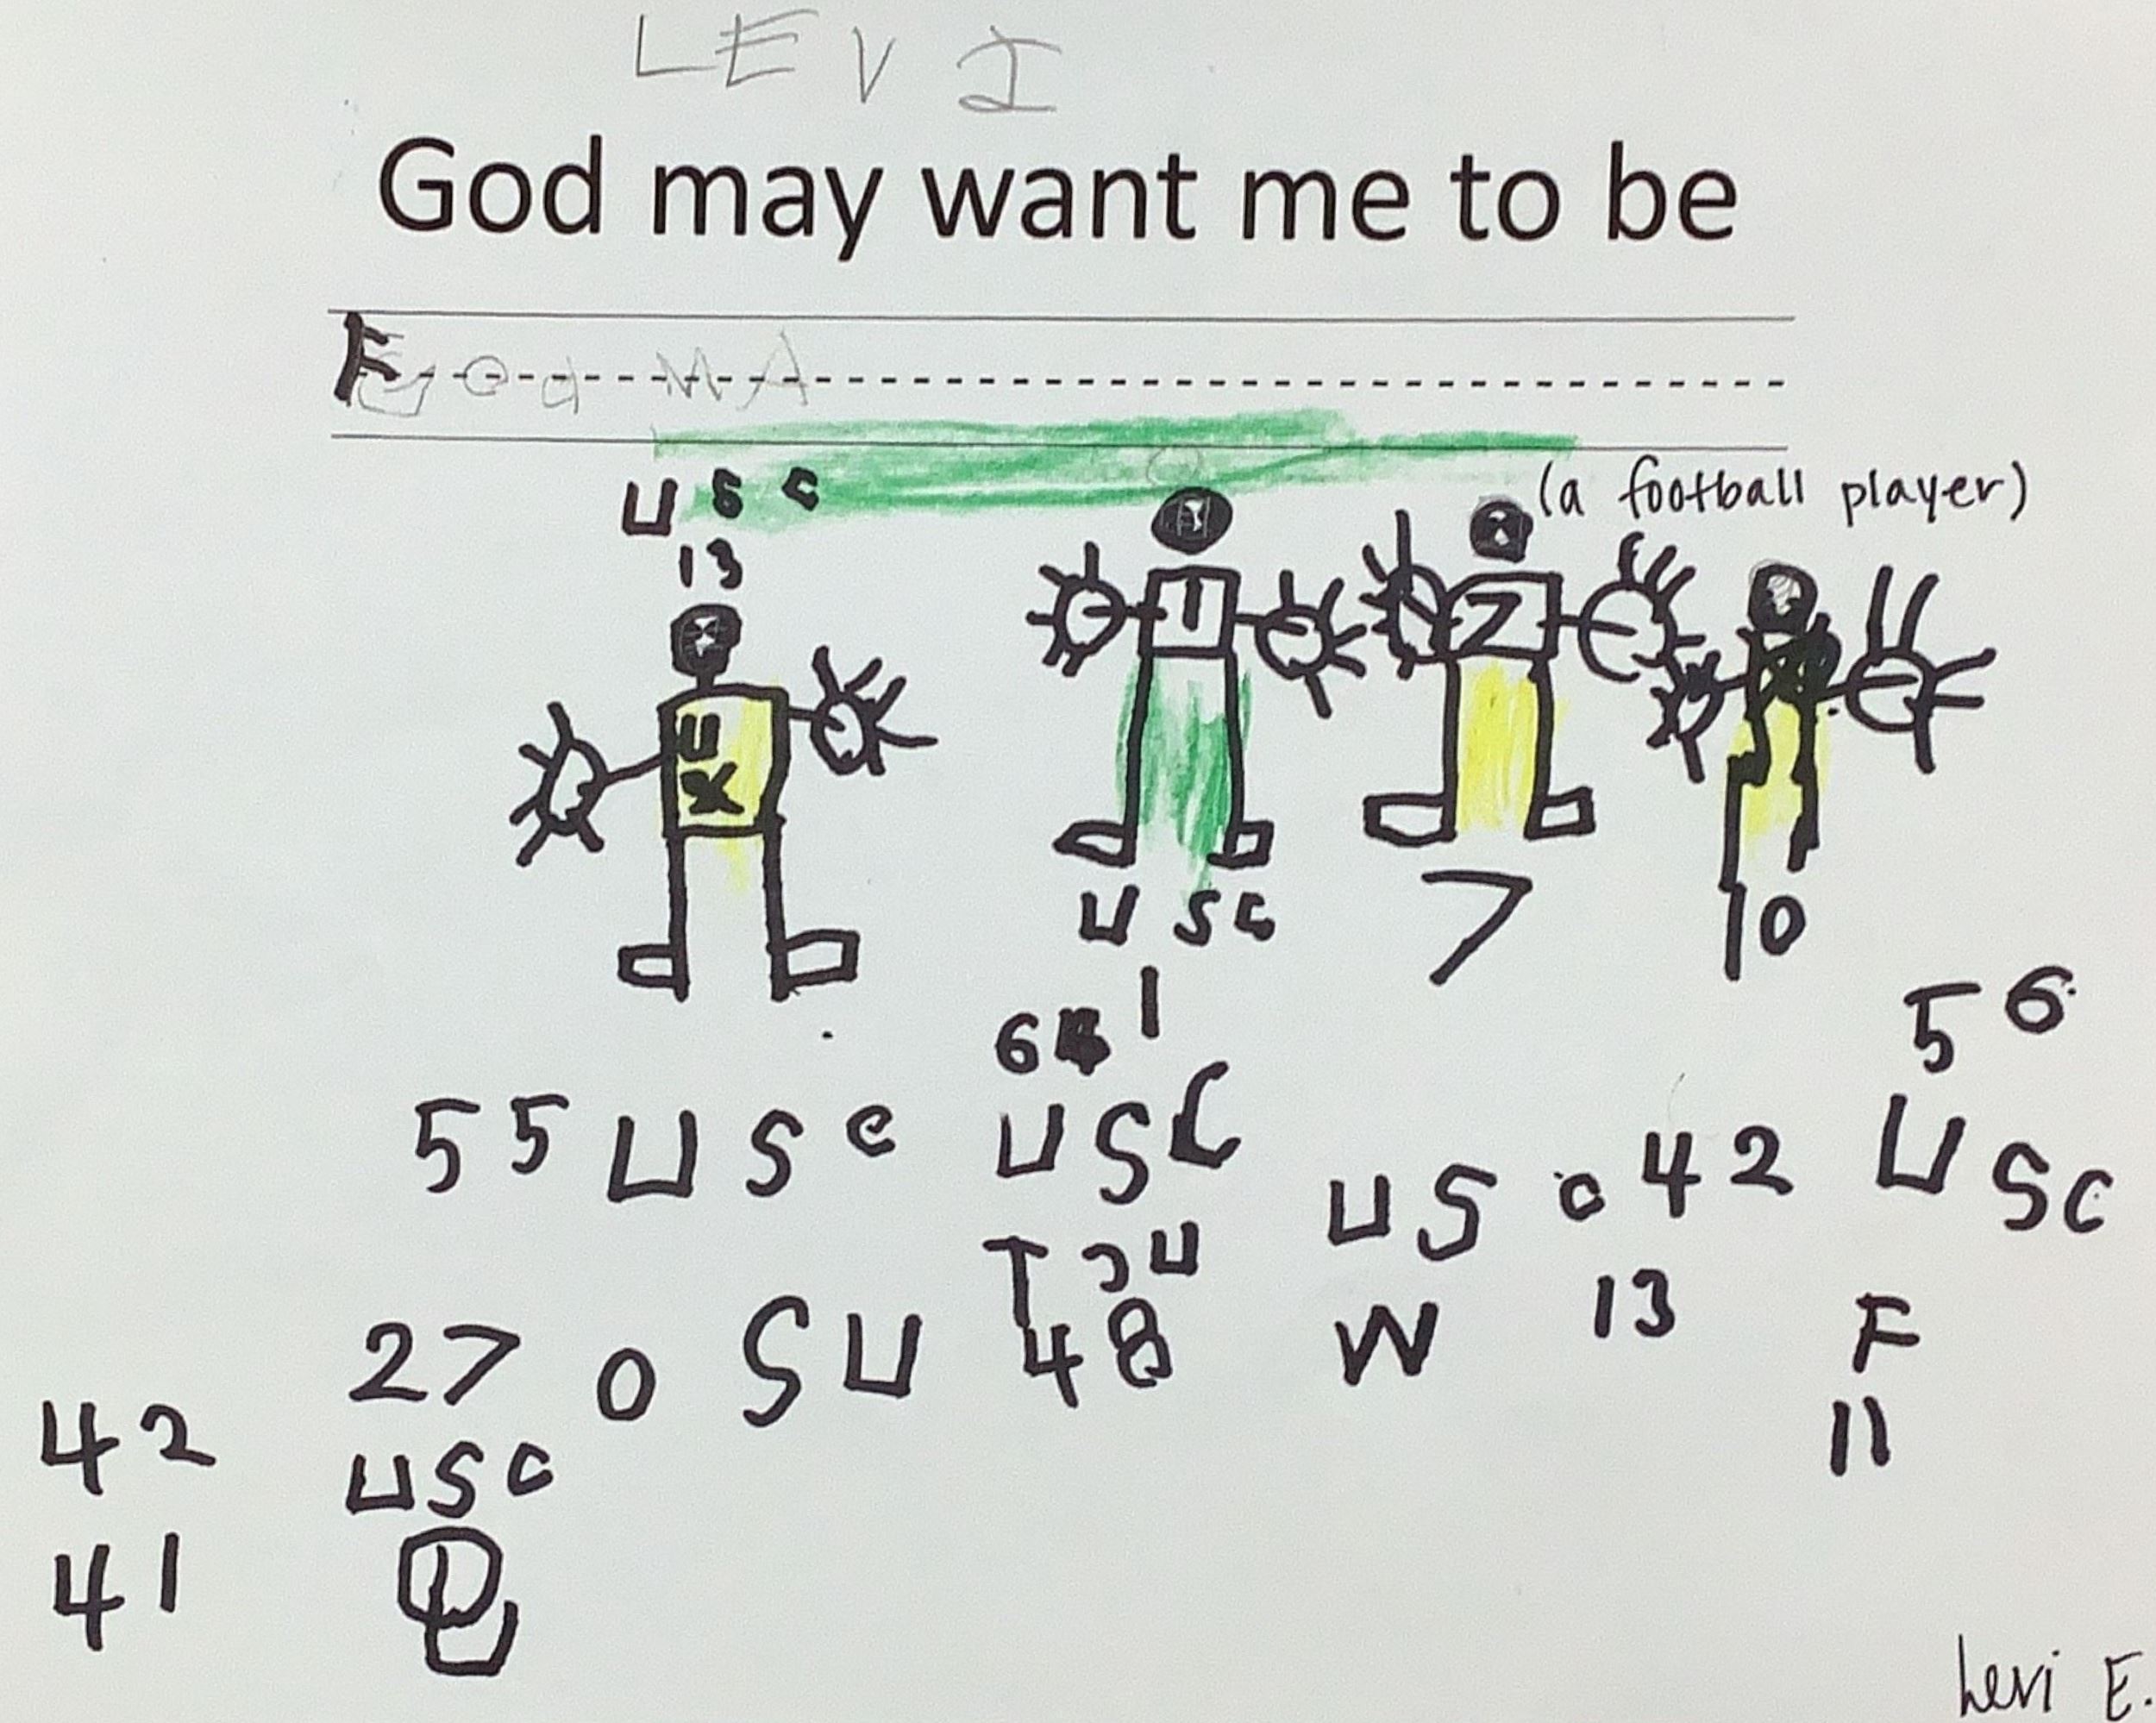 LEVI
God may want me to be
F God MA
USC
(a football player)
13
1
7
U
X
USC
7
10
1
6
56
55 USC
USC
USC 42
USC
T
U
27
0 SU
48
W
13
F
42
11
USC
41
Levi E.